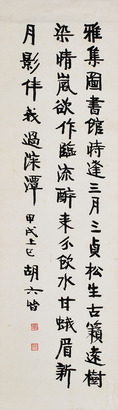 雅集圖書館時逢三月三貞松生古籟遠樹
染晴嵐欲作臨流醉來分飲水甘蛾眉新
月影伴我過深潭
甲戌上巳 胡六皆